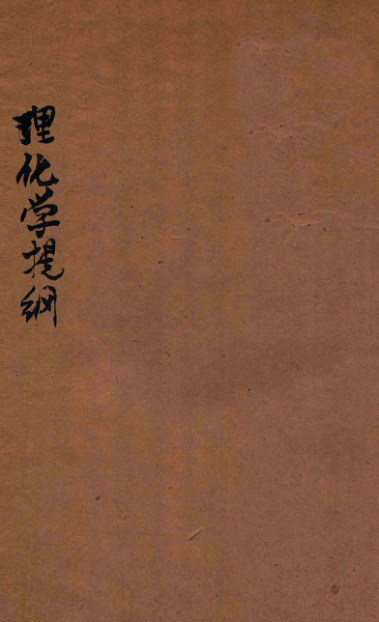 理化学提綱